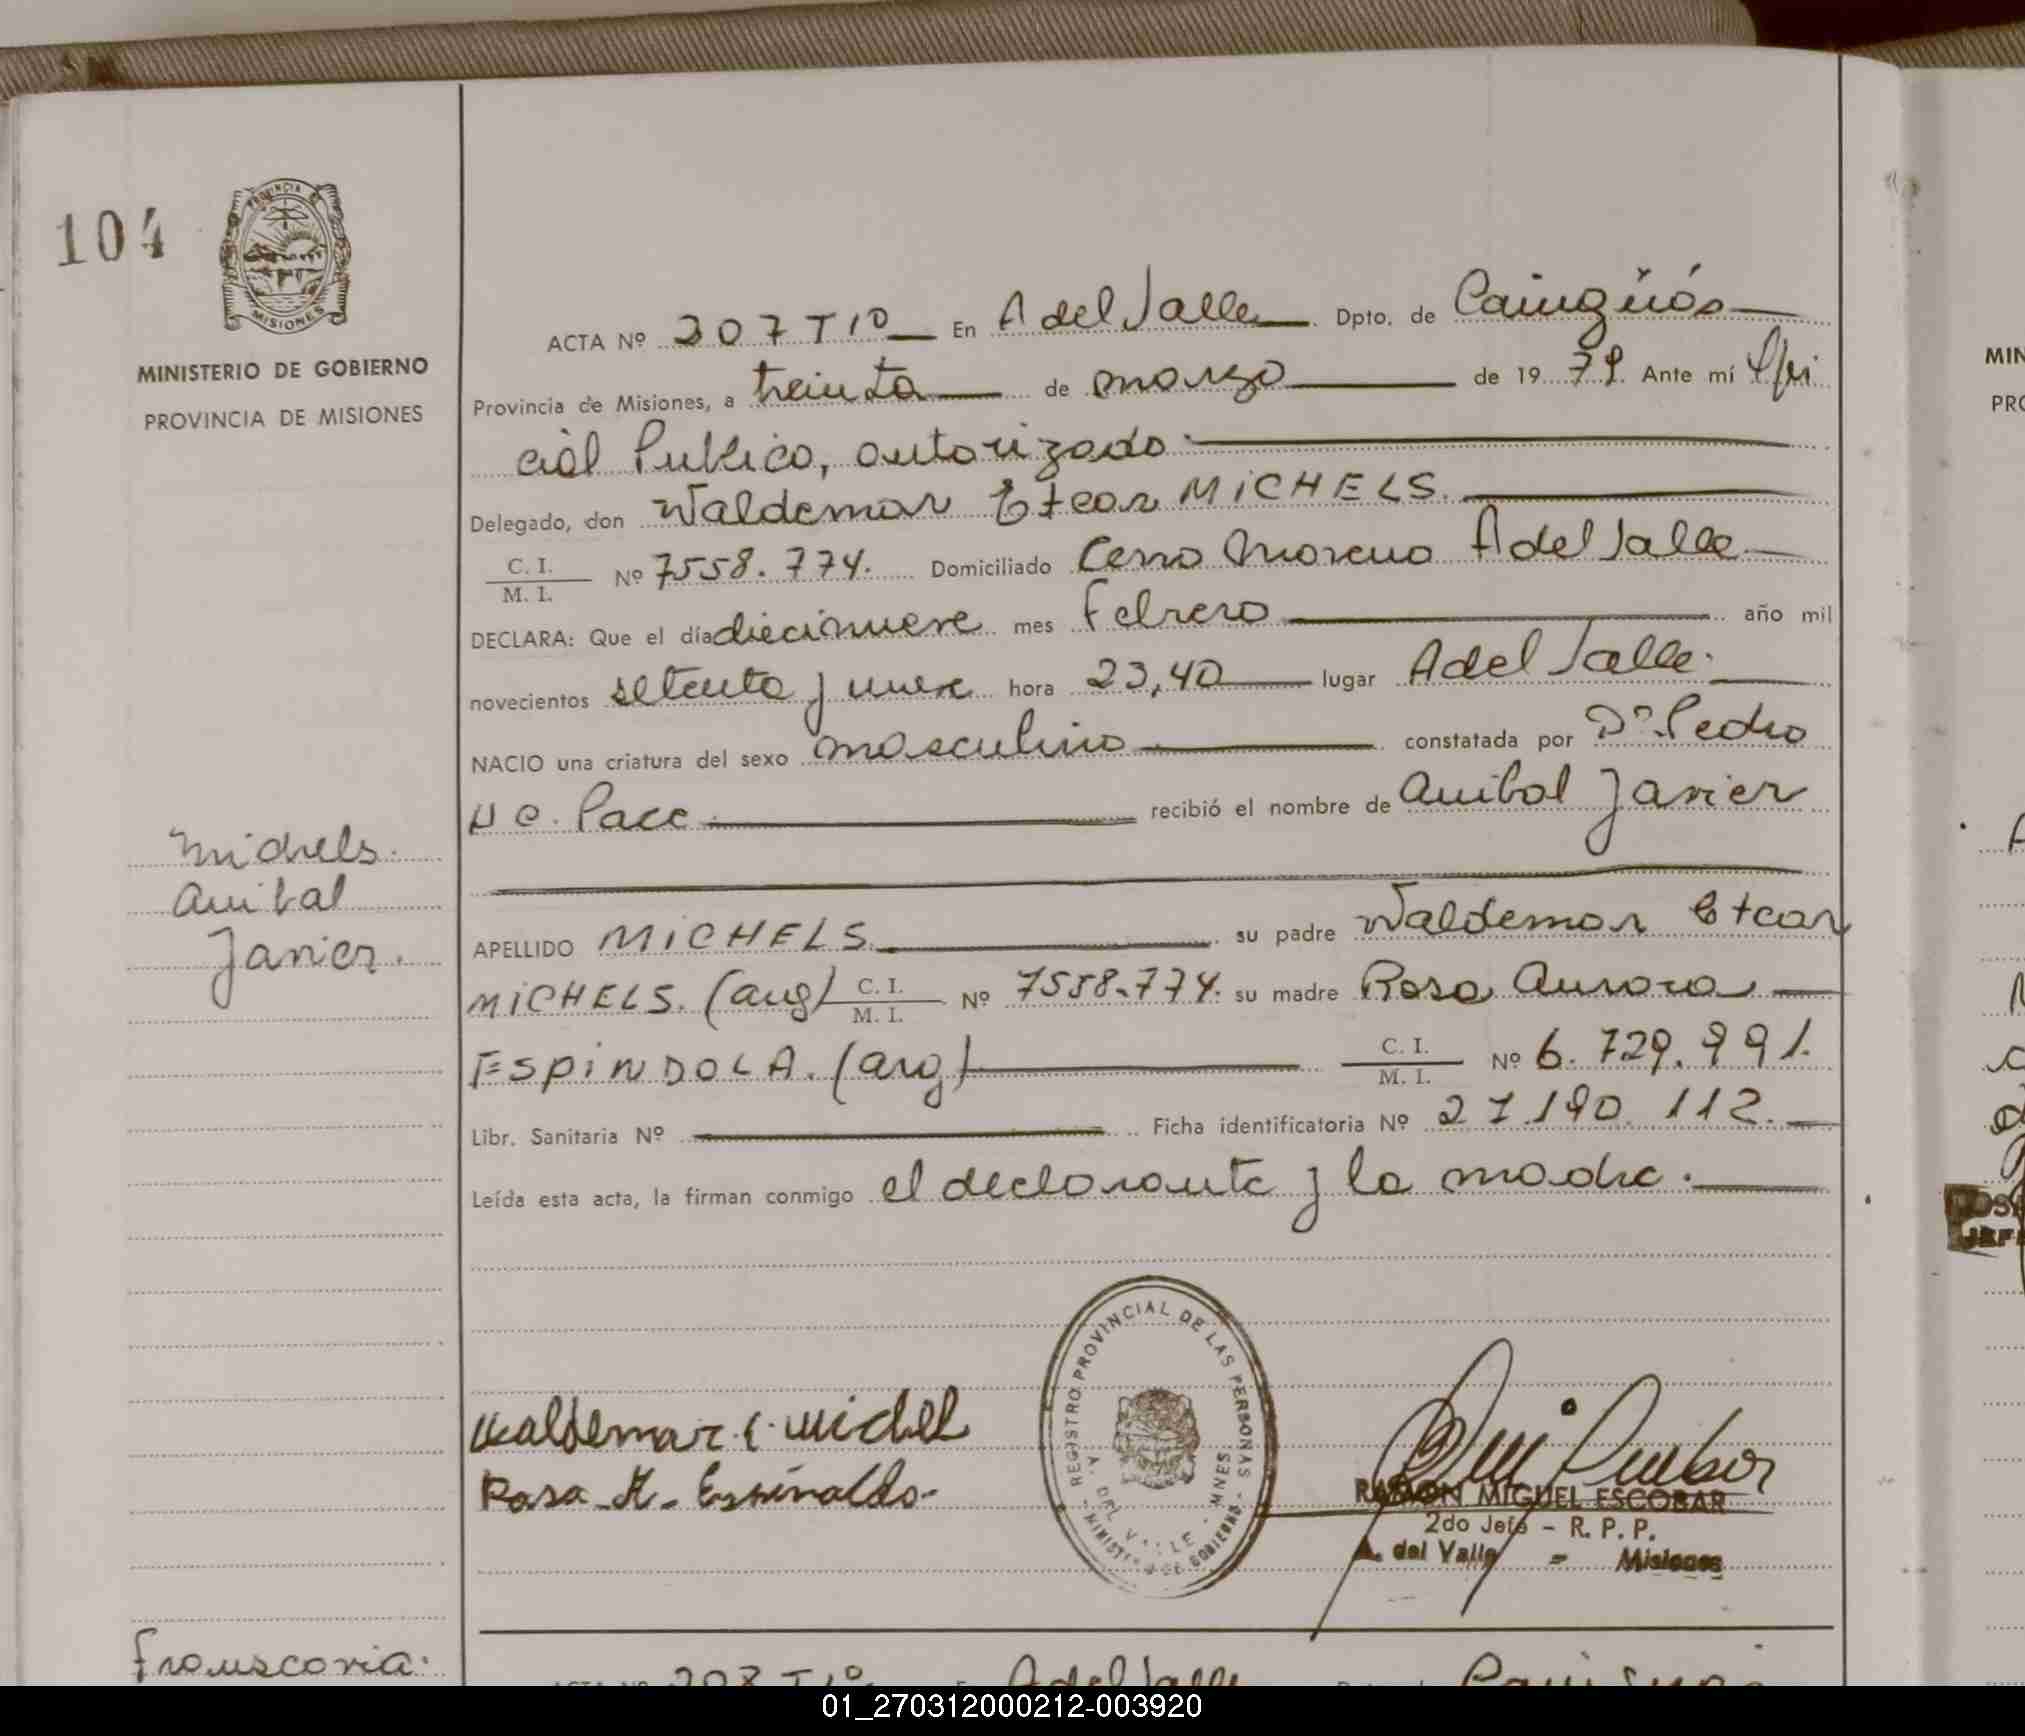 104
PROVINCIA DE
MISIONES
MINISTERIO DE GOBIERNO
PROVINCIA DE MISIONES
ACTA Nº 207 Tº1º En A del Valle Dpto. de Cainguás
Provincia de Misiones, a treinta de marzo de 1979. Ante mí Ofi
cial Publico, autorizado
Delegado, don Waldemar Etcar MICHELS.
C. I. / M. I. Nº 7558.774. Domiciliado Cerro Moreno A del Valle
DECLARA: Que el día diecinueve mes Febrero año mil
novecientos setenta y nueve hora 23,40 lugar A del Valle.
NACIO una criatura del sexo masculino constatada por Dº. Pedro
Pace recibió el nombre de Anibal Javier
Michels.
Anibal
Javier.
APELLIDO MICHELS su padre Waldemar Etcar
MICHELS. (arg) C. I. / M. I. Nº 7558.774. su madre Rosa Aurora
ESPINDOLA. (arg) C. I. / M. I. Nº 6.729.991.
Libr. Sanitaria Nº Ficha identificatoria Nº 27.190.112.
Leída esta acta, la firman conmigo el declarante y la madre.
REGISTRO PROVINCIAL DE LAS PERSONAS
A. DEL VALLE - MNES
MINISTERIO DE GOBIERNO
Waldemar E. Michel
Rosa A.
RAMON MIGUEL ESCOBAR
2do Jefe - R. P. P.
A. del Valle = Misiones
ACTA Nº 208 Tº1º A del Valle
01_270312000212-003920